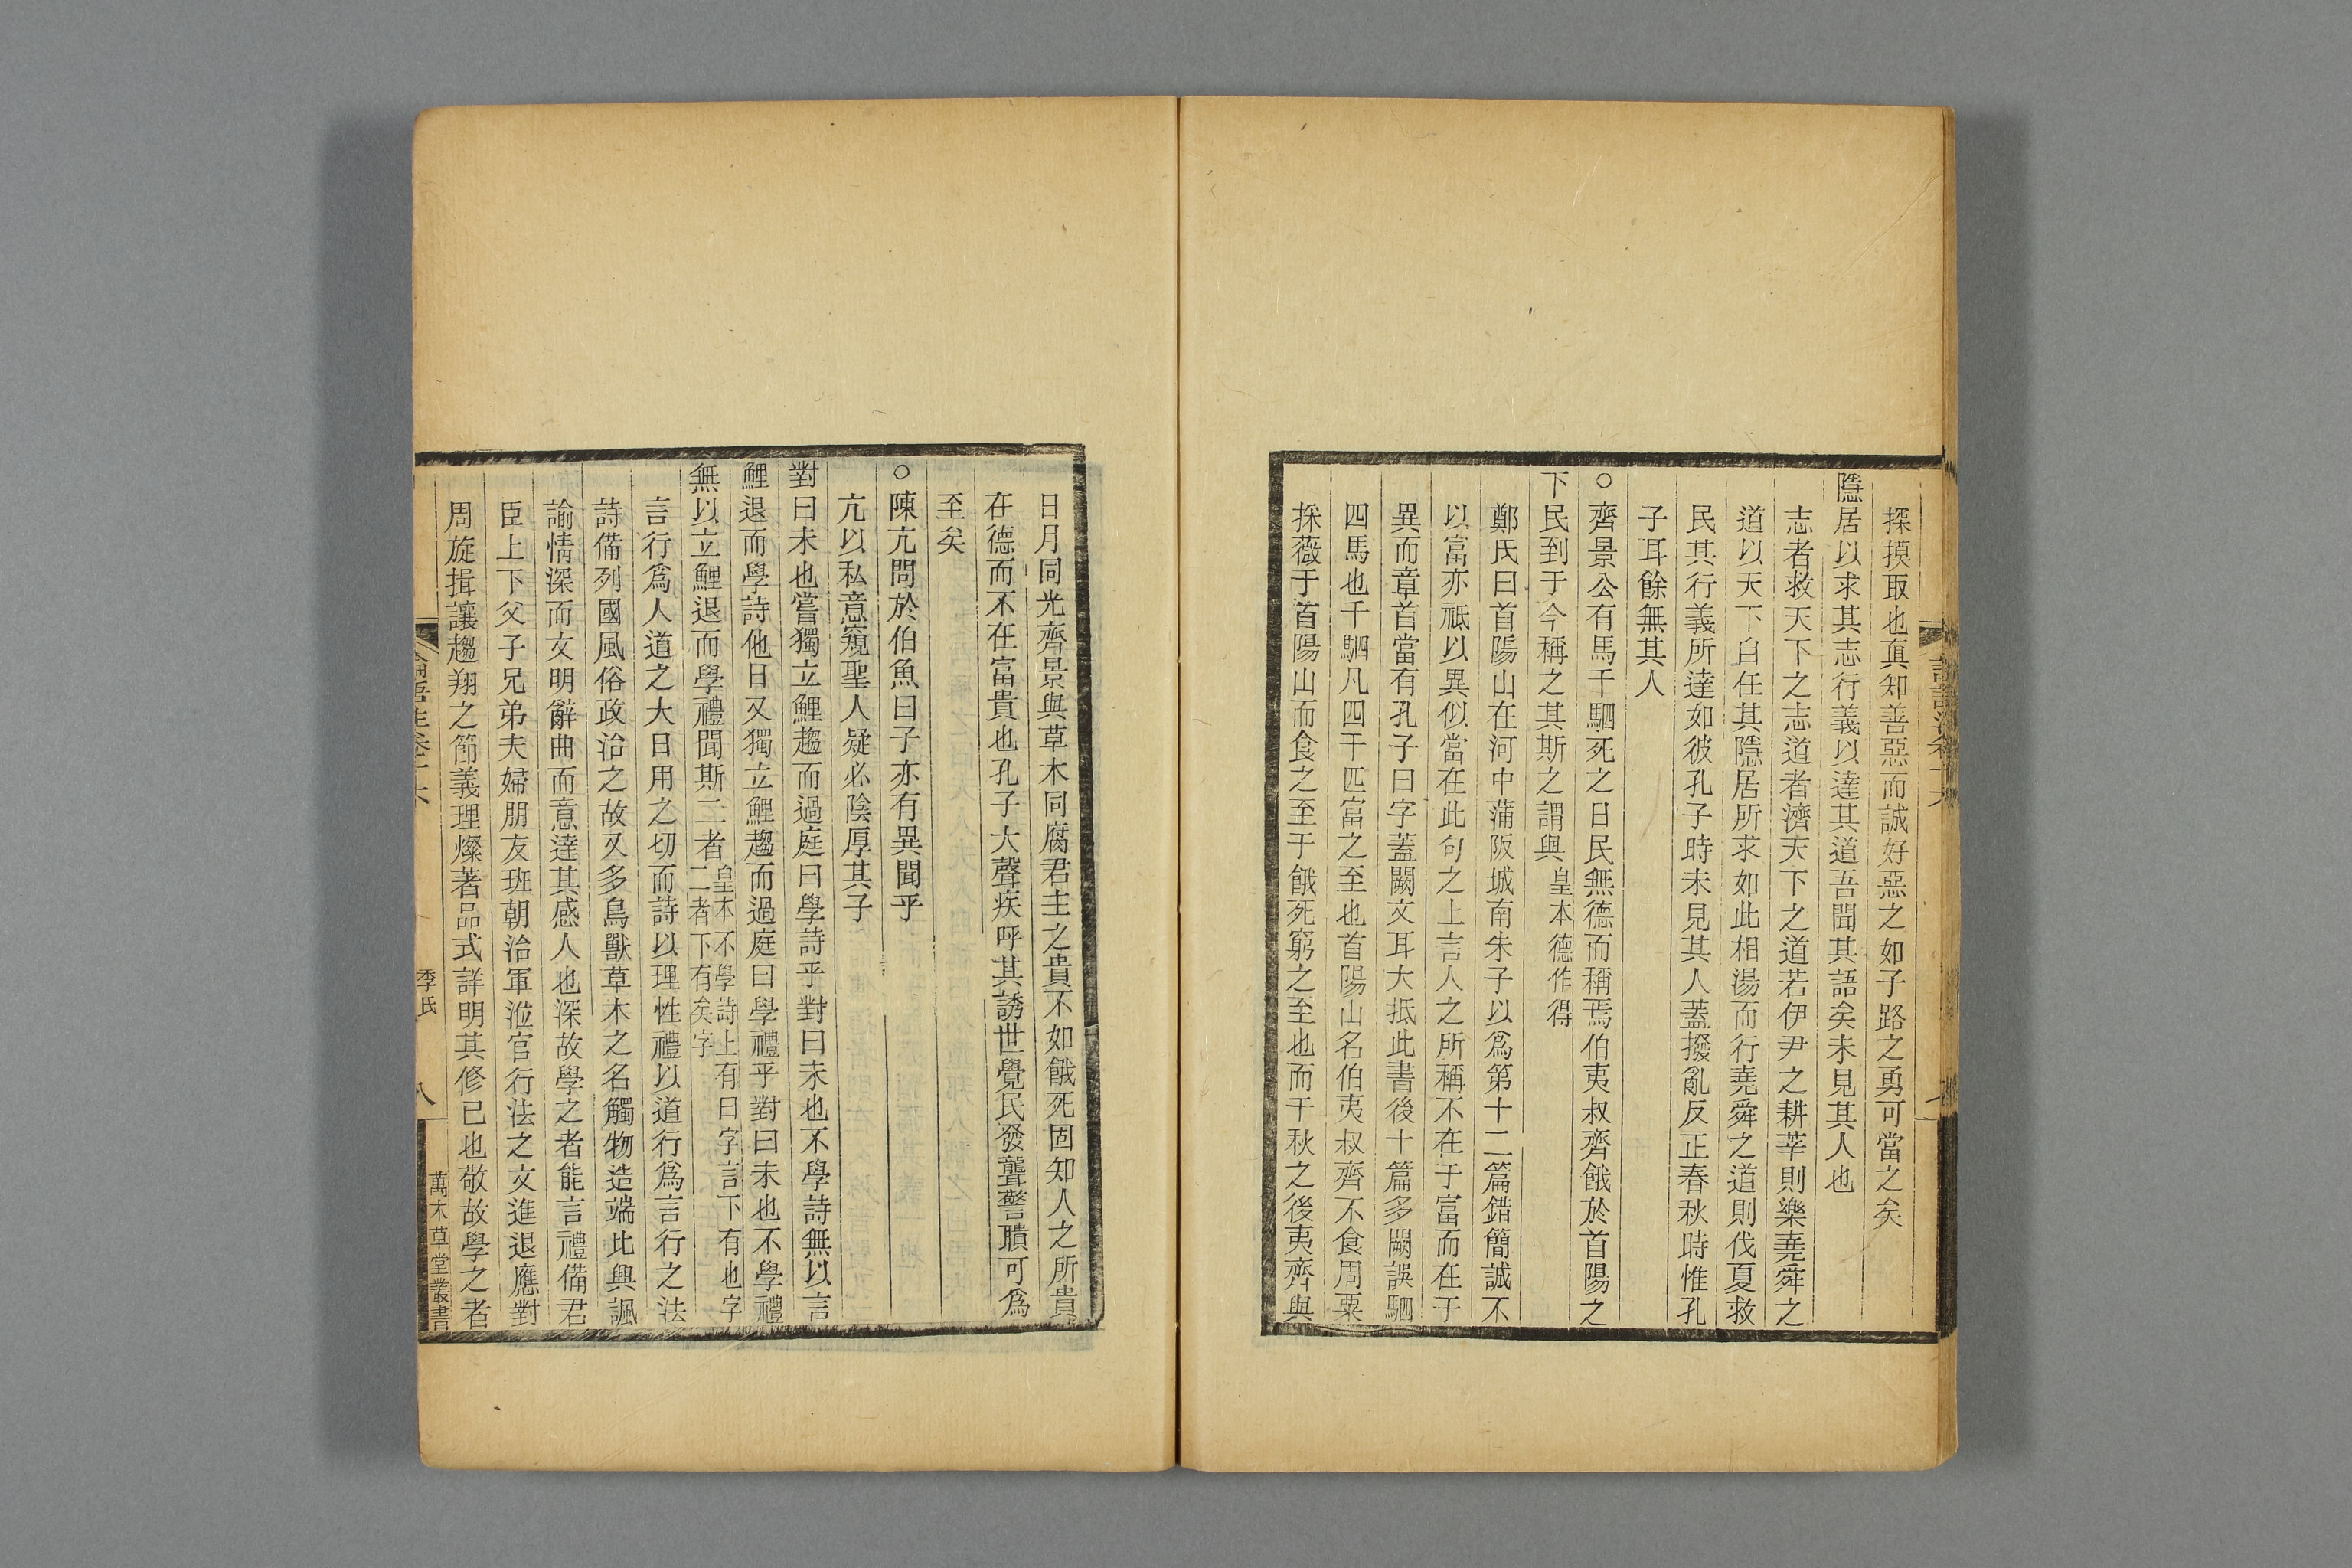 論語注卷十六
探摸取也眞知善惡而誠好惡之如子路之勇可當之矣
隱居以求其志行義以達其道吾聞其語矣未見其人也
志者救天下之志道者濟天下之道若伊尹之耕莘則樂堯舜之
道以天下自任其隱居所求如此相湯而行堯舜之道則伐夏救
民其行義所達如彼孔子時未見其人蓋撥亂反正春秋時惟孔
子耳餘無其人
○齊景公有馬千駟死之日民無德而稱焉伯夷叔齊餓於首陽之
下民到于今稱之其斯之謂與皇本德作得
鄭氏曰首陽山在河中蒲阪城南朱子以爲第十二篇錯簡誠不
以富亦祗以異似當在此句之上言人之所稱不在于富而在于
異而章首當有孔子曰字蓋闕文耳大抵此書後十篇多闕誤駟
四馬也千駟凡四千匹富之至也首陽山名伯夷叔齊不食周粟
採薇于首陽山而食之至于餓死窮之至也而千秋之後夷齊與
日月同光齊景與草木同腐君主之貴不如餓死固知人之所貴
在德而不在富貴也孔子大聲疾呼其誘世覺民發聾警聵可爲
至矣
○陳亢問於伯魚曰子亦有異聞乎
亢以私意窺聖人疑必陰厚其子
對曰未也嘗獨立鯉趨而過庭曰學詩乎對曰未也不學詩無以言
鯉退而學詩他日又獨立鯉趨而過庭曰學禮乎對曰未也不學禮
無以立鯉退而學禮聞斯二者皇本不學詩上有曰字言下有也字
二者下有矣字
言行爲人道之大日用之切而詩以理性禮以道行爲言行之法
詩備列國風俗政治之故又多鳥獸草木之名觸物造端比興諷
諭情深而文明辭曲而意達其感人也深故學之者能言禮備君
臣上下父子兄弟夫婦朋友班朝治軍涖官行法之文進退應對
周旋揖讓趨翔之節義理燦著品式詳明其修己也敬故學之者
論語注卷十六
季氏
八
萬木草堂叢書